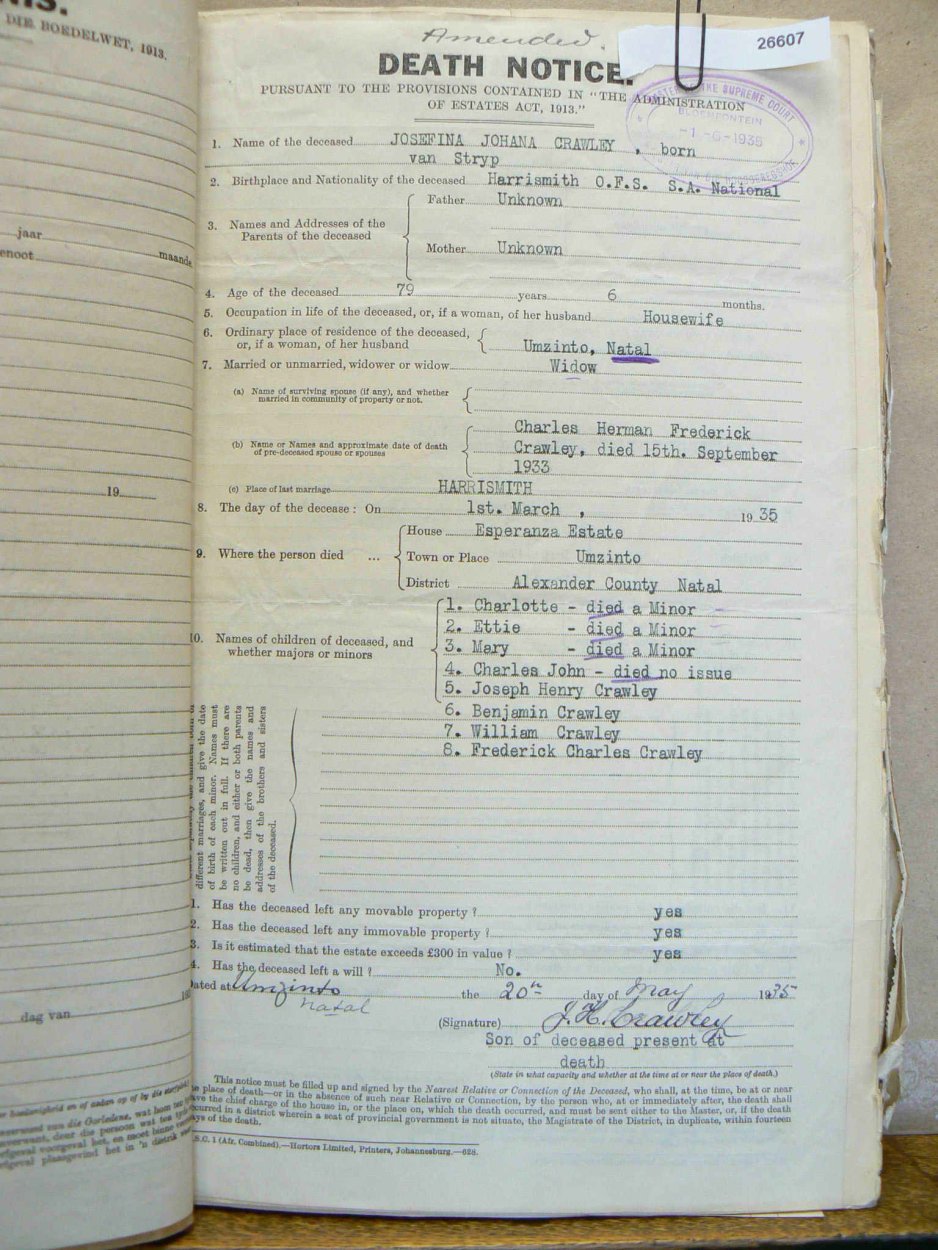 DIE BOEDELWET, 1913.
jaar
maande
19
dag van
Amended.
26607
DEATH NOTICE.
PURSUANT TO THE PROVISIONS CONTAINED IN "THE ADMINISTRATION
OF ESTATES ACT, 1913."
SUPREME COURT
BLOEMFONTEIN
1. Name of the deceased JOSEFINA JOHANA CRAWLEY, born
van Stryp
2. Birthplace and Nationality of the deceased Harrismith O.F.S. S.A. National
3. Names and Addresses of the Parents of the deceased
Father Unknown
Mother Unknown
4. Age of the deceased 79 years 6 months.
5. Occupation in life of the deceased, or, if a woman, of her husband Housewife
6. Ordinary place of residence of the deceased,
or, if a woman, of her husband Umzinto, Natal
7. Married or unmarried, widower or widow Widow
(a) Name of surviving spouse (if any), and whether
married in community of property or not.
(b) Name or Names and approximate date of death
of pre-deceased spouse or spouses
Charles Herman Frederick
Crawley, died 15th. September
1933
(c) Place of last marriage HARRISMITH
8. The day of the decease: On 1st. March, 1935
9. Where the person died ...
House Esperanza Estate
Town or Place Umzinto
District Alexander County Natal
10. Names of children of deceased, and
whether majors or minors
1. Charlotte - died a Minor
2. Ettie - died a Minor
3. Mary - died a Minor
4. Charles John - died no issue
5. Joseph Henry Crawley
6. Benjamin Crawley
7. William Crawley
8. Frederick Charles Crawley
different marriages, and give the date
of birth of each minor. Names must
be written out in full. If there are
no children, and either or both parents
be dead, then give the names and
addresses of the brothers and sisters
of the deceased.
1. Has the deceased left any movable property? yes
2. Has the deceased left any immovable property? yes
3. Is it estimated that the estate exceeds £300 in value? yes
4. Has the deceased left a will? No.
ated at Umzinto the 20th day of May 1935
Natal
(Signature) J.H. Crawley
Son of deceased present at
death
(State in what capacity and whether at the time at or near the place of death.)
This notice must be filled up and signed by the Nearest Relative or Connection of the Deceased, who shall, at the time, be at or near
he place of death—or in the absence of such near Relative or Connection, by the person who, at or immediately after, the death shall
ave the chief charge of the house in, or the place on, which the death occurred, and must be sent either to the Master, or, if the death
ccurred in a district wherein a seat of provincial government is not situate, the Magistrate of the District, in duplicate, within fourteen
ys of the death.
S.C. 1 (Afr. Combined).—Hortors Limited, Printers, Johannesburg.—628.